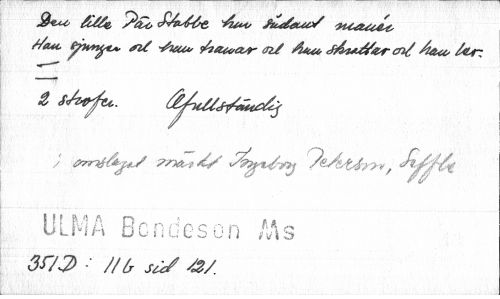 Den lille Pär Stabbe har sådant manér
Han sjunger och han tranar och han skrattar och han ler.
2 strofer. Ofullständig
i omslaget märkt Ingeborg Peterson, Seffle
ULMA Bondeson Ms
351D: 116 sid 121.